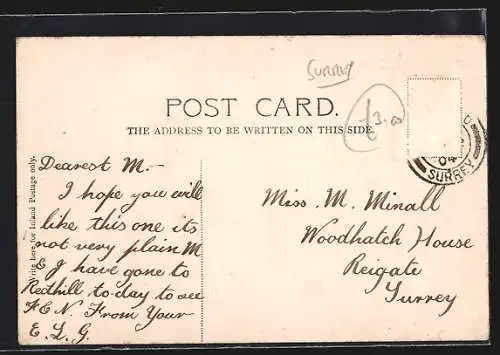 Surrey
POST CARD.
£3.00
THE ADDRESS TO BE WRITTEN ON THIS SIDE.
04
SURREY
Write here for Inland Postage only.
Dearest M.-
I hope you will
like this one its
not very plain M
& J have gone to
Redhill to-day to see
F & N. From Your
E. L. G.
Miss. M. Minall
Woodhatch House
Reigate
Surrey